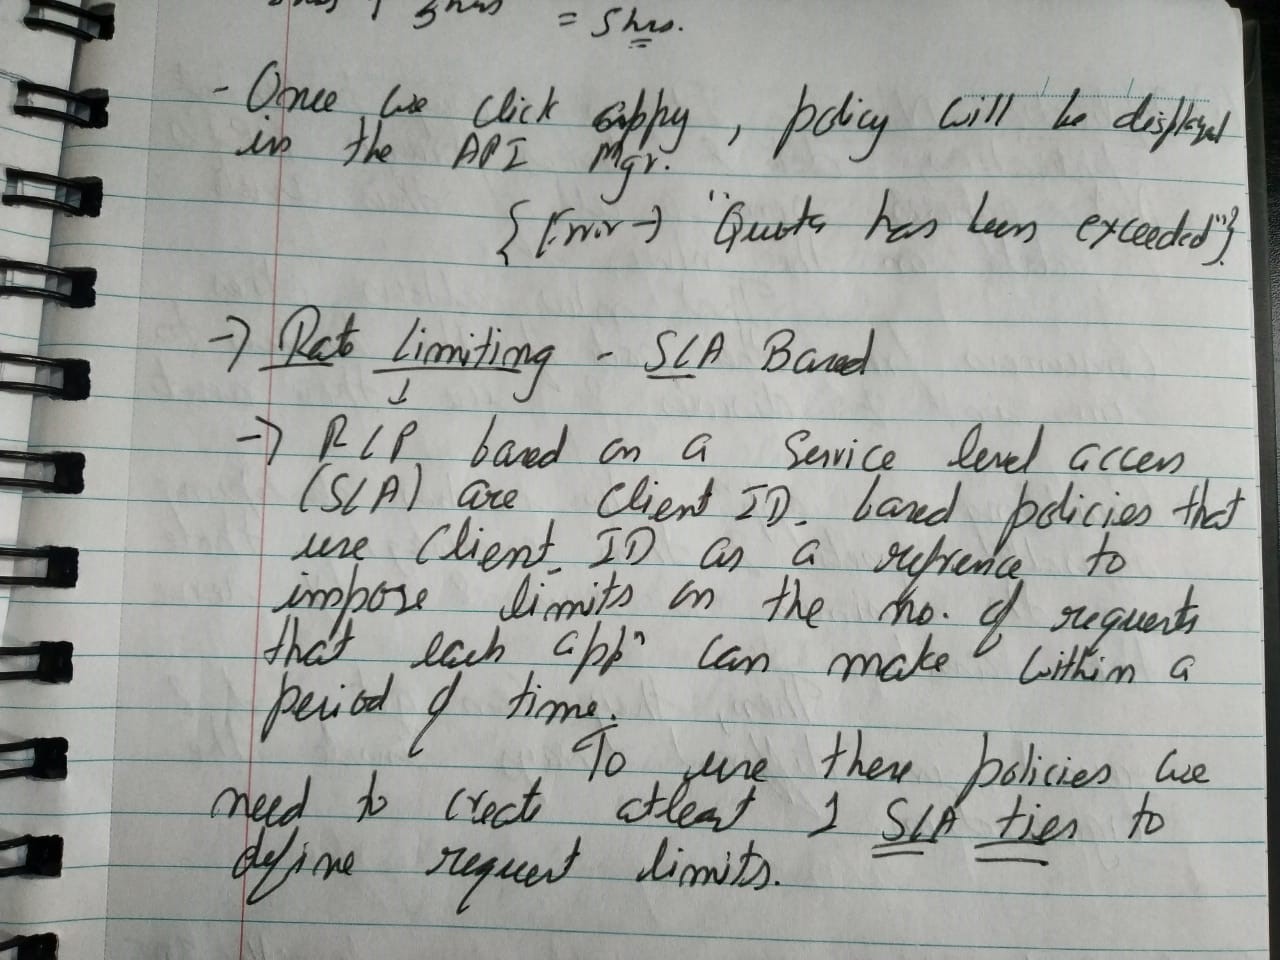 3hrs = 5hrs.
- Once we click apply, policy will be displayed
in the API Mgr.
{Error → "Quota has been exceeded"}.
→ Rate limiting - SLA Based
↓
→ RLP based on a Service level access
(SLA) are Client ID- based policies that
use Client-ID as a refrence to
impose limits on the no. of requests
that each appⁿ can make within a
period of time.
To use these policies we
need to create atleast 1 SLA ties to
define request limits.